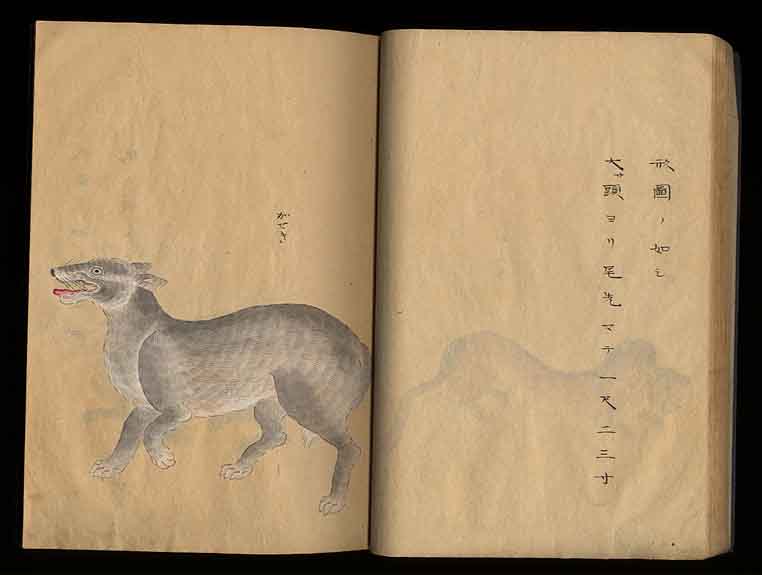 形圖ノ如シ
大サ頭ヨリ尾先マテ一尺二三寸
がせき